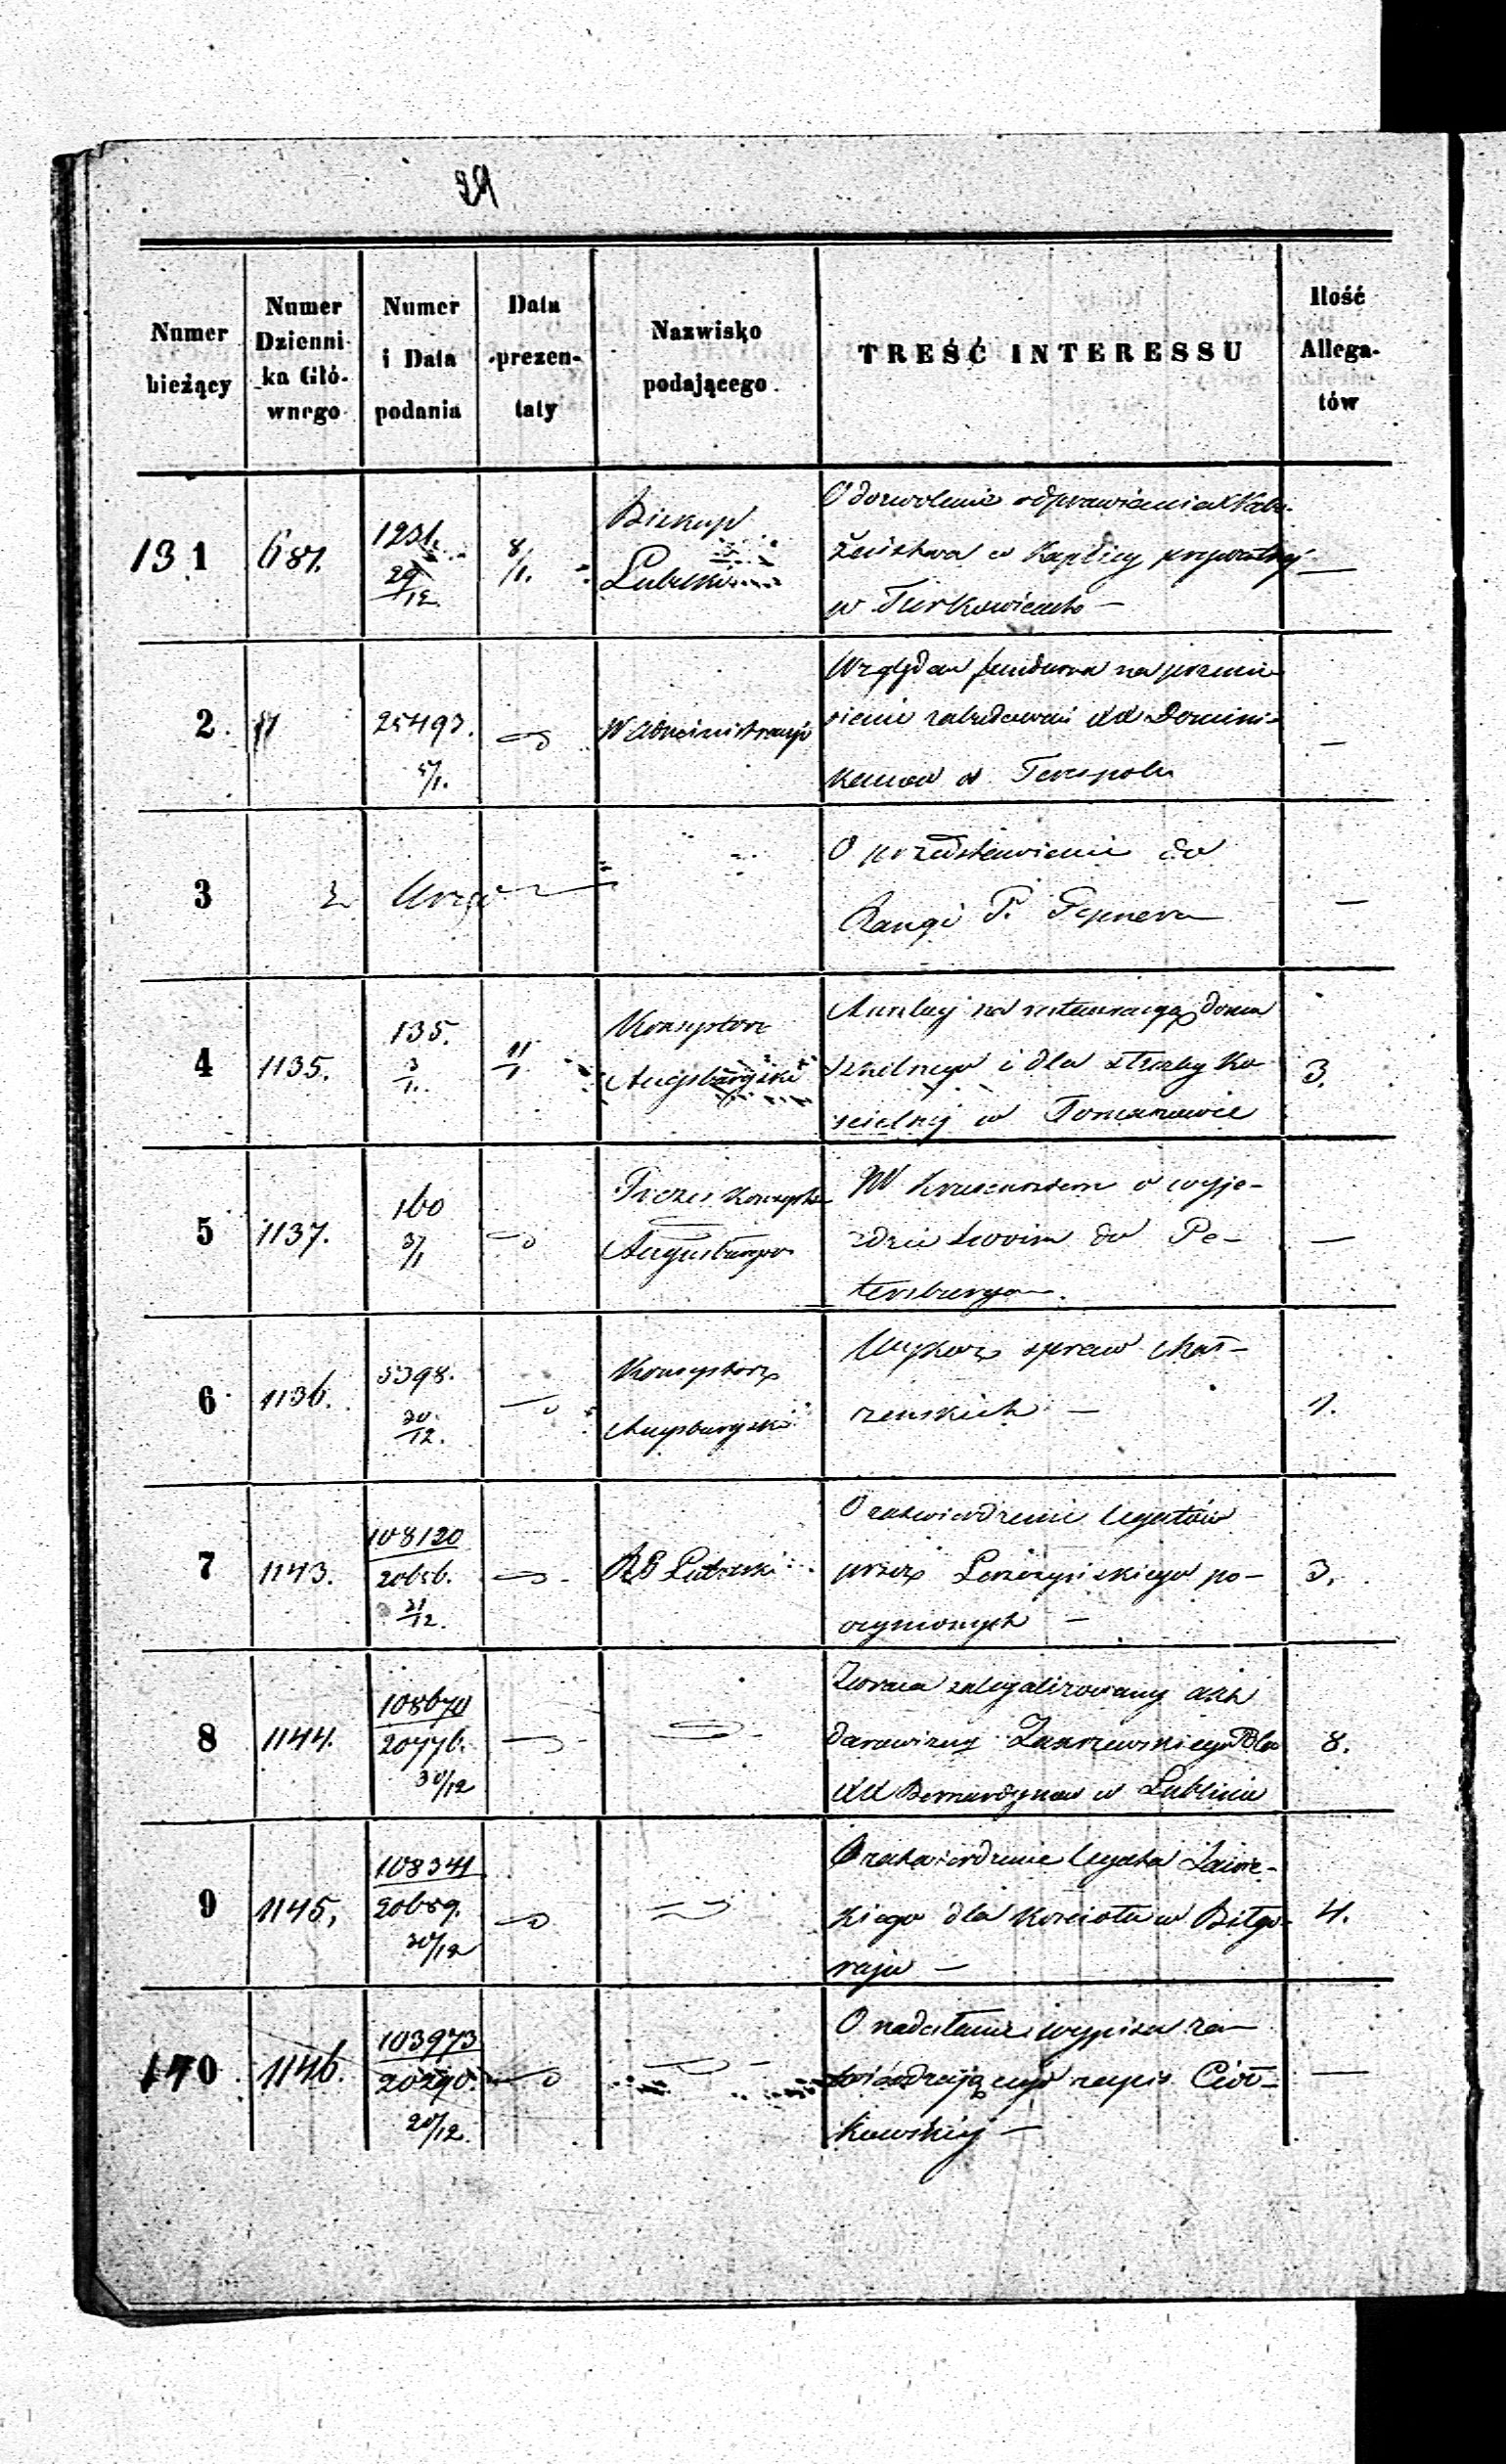 29
Numer bieżący
Numer Dzienni- ka Głó- wnego
Numer i Data podania
Data prezen- taty
Nazwisko podającego
TREŚĆ INTERESSU
Ilość Allega- tów
131 687. 1231. 29/12. 8/1. Biskup Lubelski —
O dozwolenie odprawiania Nabo-
żeństwa w Kaplicy prywatnej
w Turkowicach —
2. 25493. 5/1. W Administracyi —
Względem funduszu na
zabudowań XX Domini-
kanow w Terespolu
3 z Urzędu —
O przedstawienie do
Rangi P. Tepnera
4 1135. 135. 3/1. 11/1 Konsystorz Augsburgski 3.
Anszlag na restauracyą domu
szkolnego i dla służby Ko-
scielnej w Tomaszowie
5 1137. 160 3/1 Prezes Konsystorza Augsburgo —
W o wyje-
zdzie swoim do Pe-
tersburga.
6 1136. 5398. 30/12. Konsystorz Augsburgski 1.
Wykaz spraw Mał-
zenskich —
7 1143. 108120 20656. 31/12. RG Lubelski 3.
O zatwierdzenie legatów
przez po-
czynionych —
8 1144. 108670 20776. 30/12 8.
Zwraca zalegalizowany akt
darowizny Zakrzewskiego dla
XX Bernardynow w Lublinie
9 1145, 108341 20689. 30/12 4.
O zatwierdzenie legatu
dla Kościoła w Biłgo-
raju —
140 1146. 103973 20290. 20/12. —
O nadesłanie wypisu za-
twierdzającego zapis Ciół-
kowskiej —